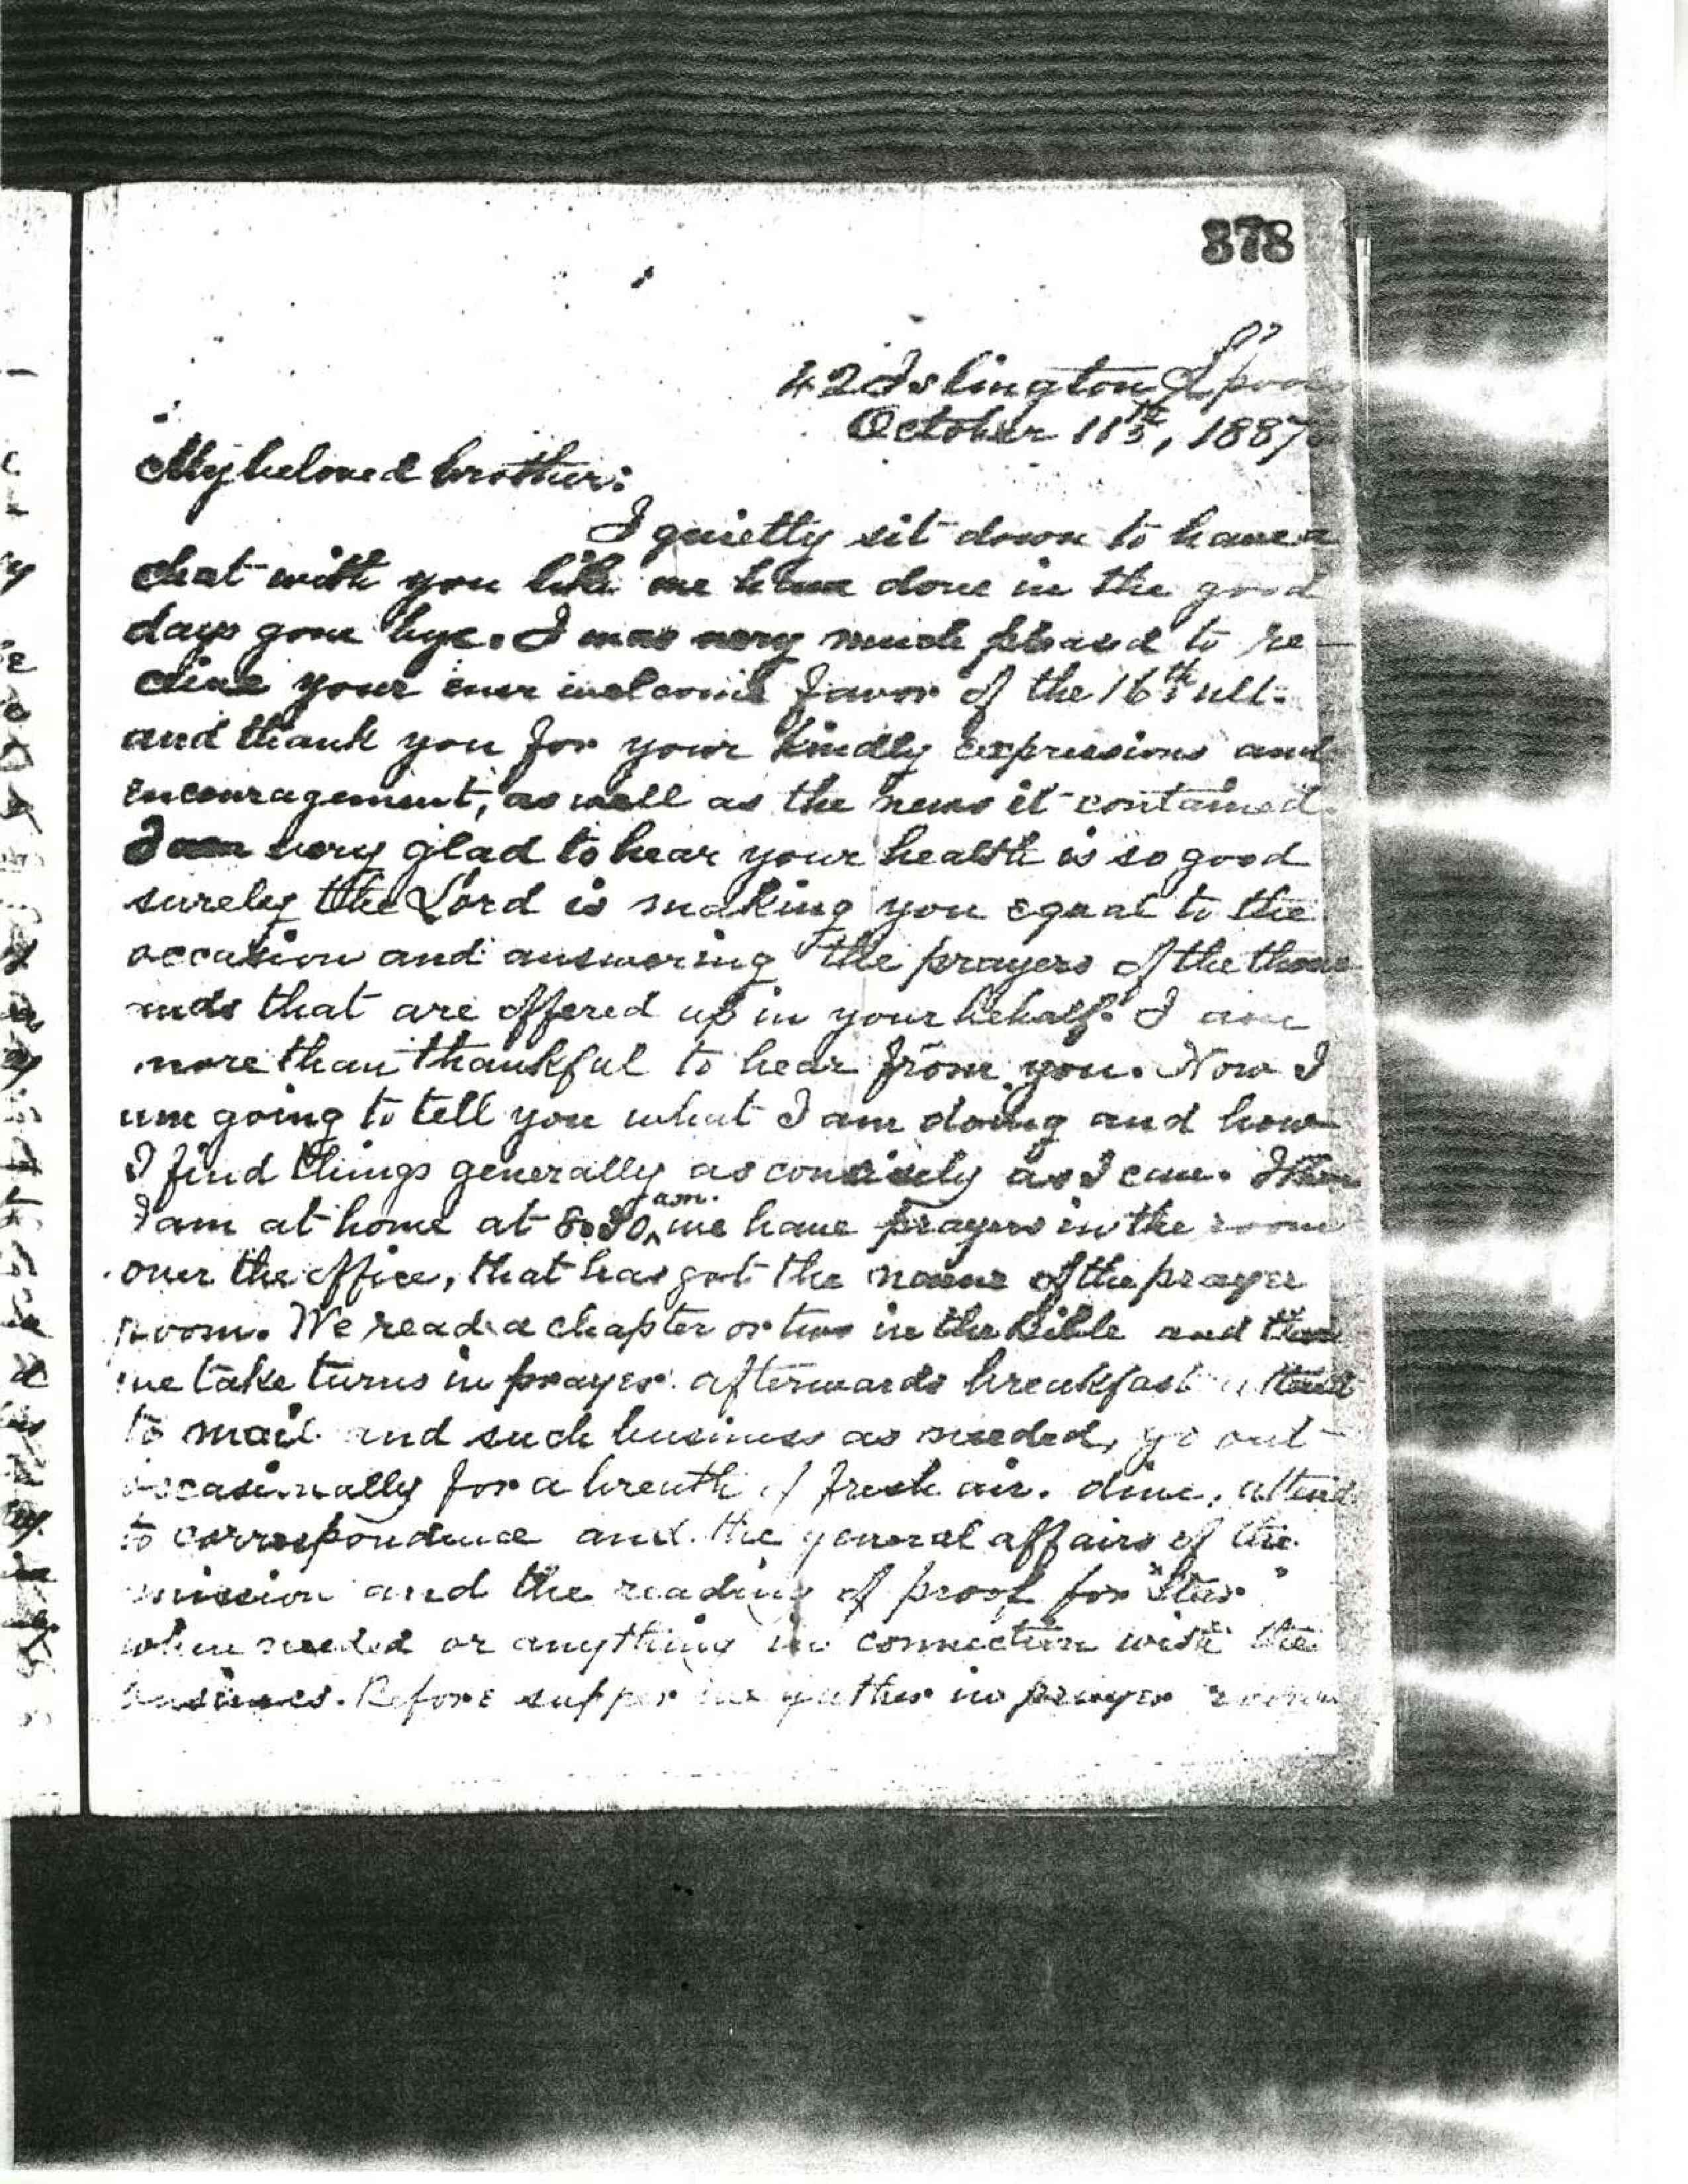 378
42 Islington L'pool
October 11th, 1887
My beloved brother:
I quietly sit down to have a
chat with you like we have done in the good
days gone bye. I was very much pleased to re-
ceive your ever welcome favor of the 16th ult.
and thank you for your kindly expressions and
encouragement, as well as the news it contained.
I am very glad to hear your health is so good
surely the Lord is making you equal to the
occasion and answering the prayers of the thous
ands that are offered up in your behalf. I am
more than thankful to hear from you. Now I
am going to tell you what I am doing and how
I find things generally as concisely as I can. When
I am at home at 8.30 am. we have prayers in the room
over the office, that has got the name of the prayer
room. We read a chapter or two in the Bible and then
we take turns in prayer. afterwards breakfast attend
to mail and such business as needed, go out
occasionally for a breath of fresh air. dine, attend
to correspondence and the general affairs of the
mission and the reading of proof for "Star"
when needed or anything in connection with the
business. Before supper we gather in prayer room